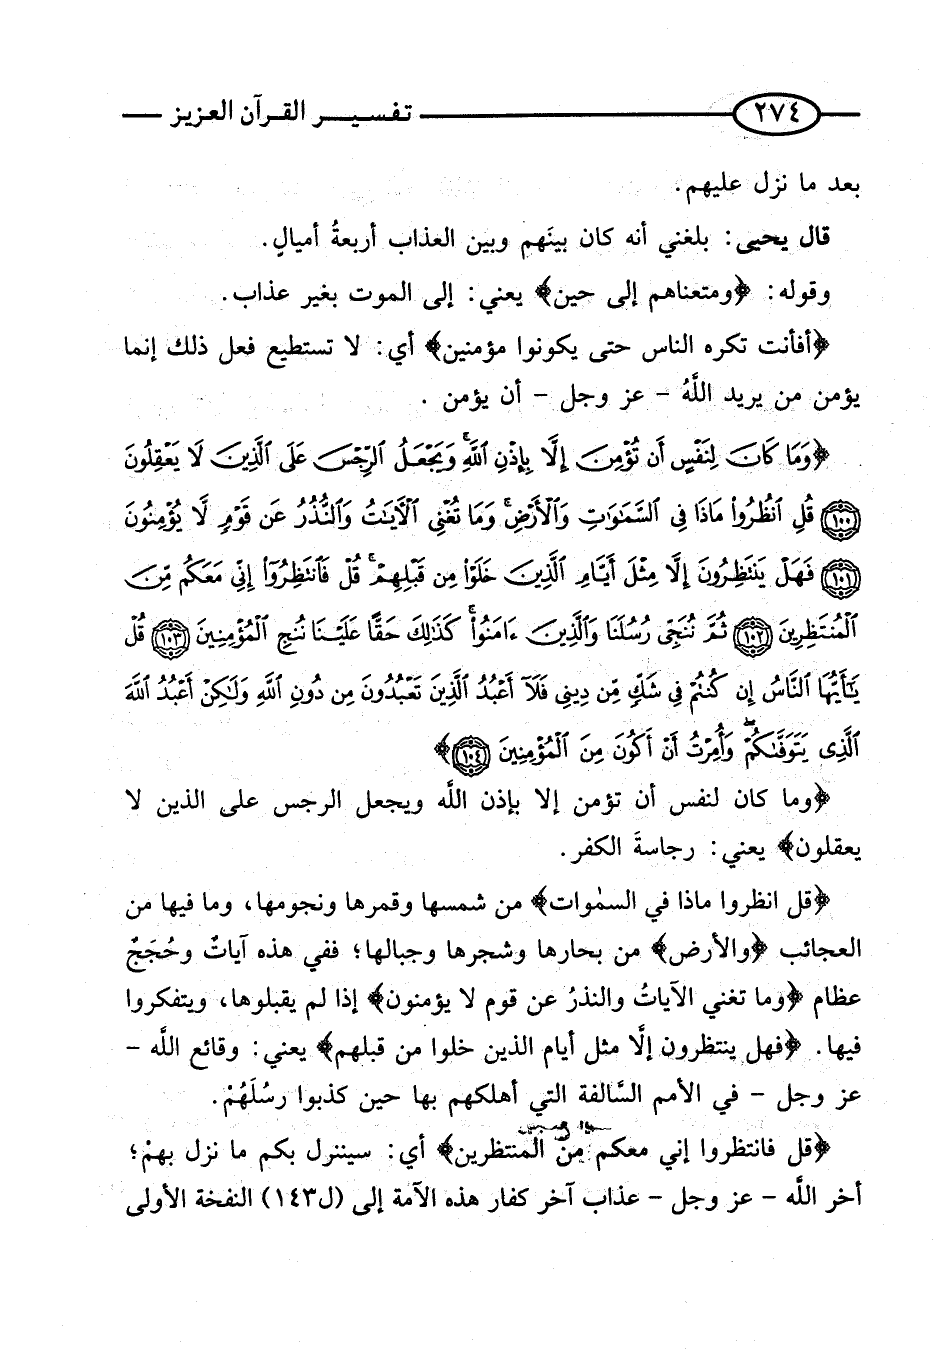 ٢٧٤ تفسير القرآن العزيز
بعد ما نزل عليهم.
قال يحيى: بلغني أنه كان بينَهم وبين العذاب أربعةُ أميالٍ.
وقوله: ﴿ومتعناهم إلى حين﴾ يعني: إلى الموت بغير عذاب.
﴿أفأنت تكره الناس حتى يكونوا مؤمنين﴾ أي: لا تستطيع فعل ذلك إنما
يؤمن من يريد اللَّهُ - عز وجل - أن يؤمن .
﴿وَمَا كَانَ لِنَفْسٍ أَن تُؤْمِنَ إِلَّا بِإِذْنِ اللَّهِ ۚ وَيَجْعَلُ الرِّجْسَ عَلَى الَّذِينَ لَا يَعْقِلُونَ
﴿١٠٠﴾ قُلِ انظُرُوا مَاذَا فِي السَّمَاوَاتِ وَالْأَرْضِ ۚ وَمَا تُغْنِي الْآيَاتُ وَالنُّذُرُ عَن قَوْمٍ لَّا يُؤْمِنُونَ
﴿١٠١﴾ فَهَلْ يَنتَظِرُونَ إِلَّا مِثْلَ أَيَّامِ الَّذِينَ خَلَوْا مِن قَبْلِهِمْ ۚ قُلْ فَانتَظِرُوا إِنِّي مَعَكُم مِّنَ
الْمُنتَظِرِينَ ﴿١٠٢﴾ ثُمَّ نُنَجِّي رُسُلَنَا وَالَّذِينَ ءَامَنُوا ۚ كَذَٰلِكَ حَقًّا عَلَيْنَا نُنجِ الْمُؤْمِنِينَ ﴿١٠٣﴾ قُلْ
يَٰأَيُّهَا النَّاسُ إِن كُنتُمْ فِي شَكٍّ مِّن دِينِي فَلَا أَعْبُدُ الَّذِينَ تَعْبُدُونَ مِن دُونِ اللَّهِ وَلَٰكِنْ أَعْبُدُ اللَّهَ
الَّذِي يَتَوَفَّاكُمْ ۖ وَأُمِرْتُ أَنْ أَكُونَ مِنَ الْمُؤْمِنِينَ ﴿١٠٤﴾﴾
﴿وما كان لنفس أن تؤمن إلا بإذن اللَّه ويجعل الرجس على الذين لا
يعقلون﴾ يعني: رجاسةَ الكفر.
﴿قل انظروا ماذا في السمٰوات﴾ من شمسها وقمرها ونجومها، وما فيها من
العجائب ﴿والأرض﴾ من بحارها وشجرها وجبالها؛ ففي هذه آياتٌ وحُجَجٌ
عظام ﴿وما تغني الآياتُ والنذرُ عن قوم لا يؤمنون﴾ إذا لم يقبلوها، ويتفكروا
فيها. ﴿فهل ينتظرون إلَّا مثل أيام الذين خلوا من قبلهم﴾ يعني: وقائع اللَّه -
عز وجل - في الأمم السَّالفة التي أهلكهم بها حين كذبوا رسُلَهُمْ.
﴿قل فانتظروا إني معكم مِنَ المنتظرين﴾ أي: سيننزل بكم ما نزل بهمْ؛
أخر اللَّه - عز وجل - عذاب آخر كفار هذه الأمة إلى (ل١٤٣) النفخة الأولى